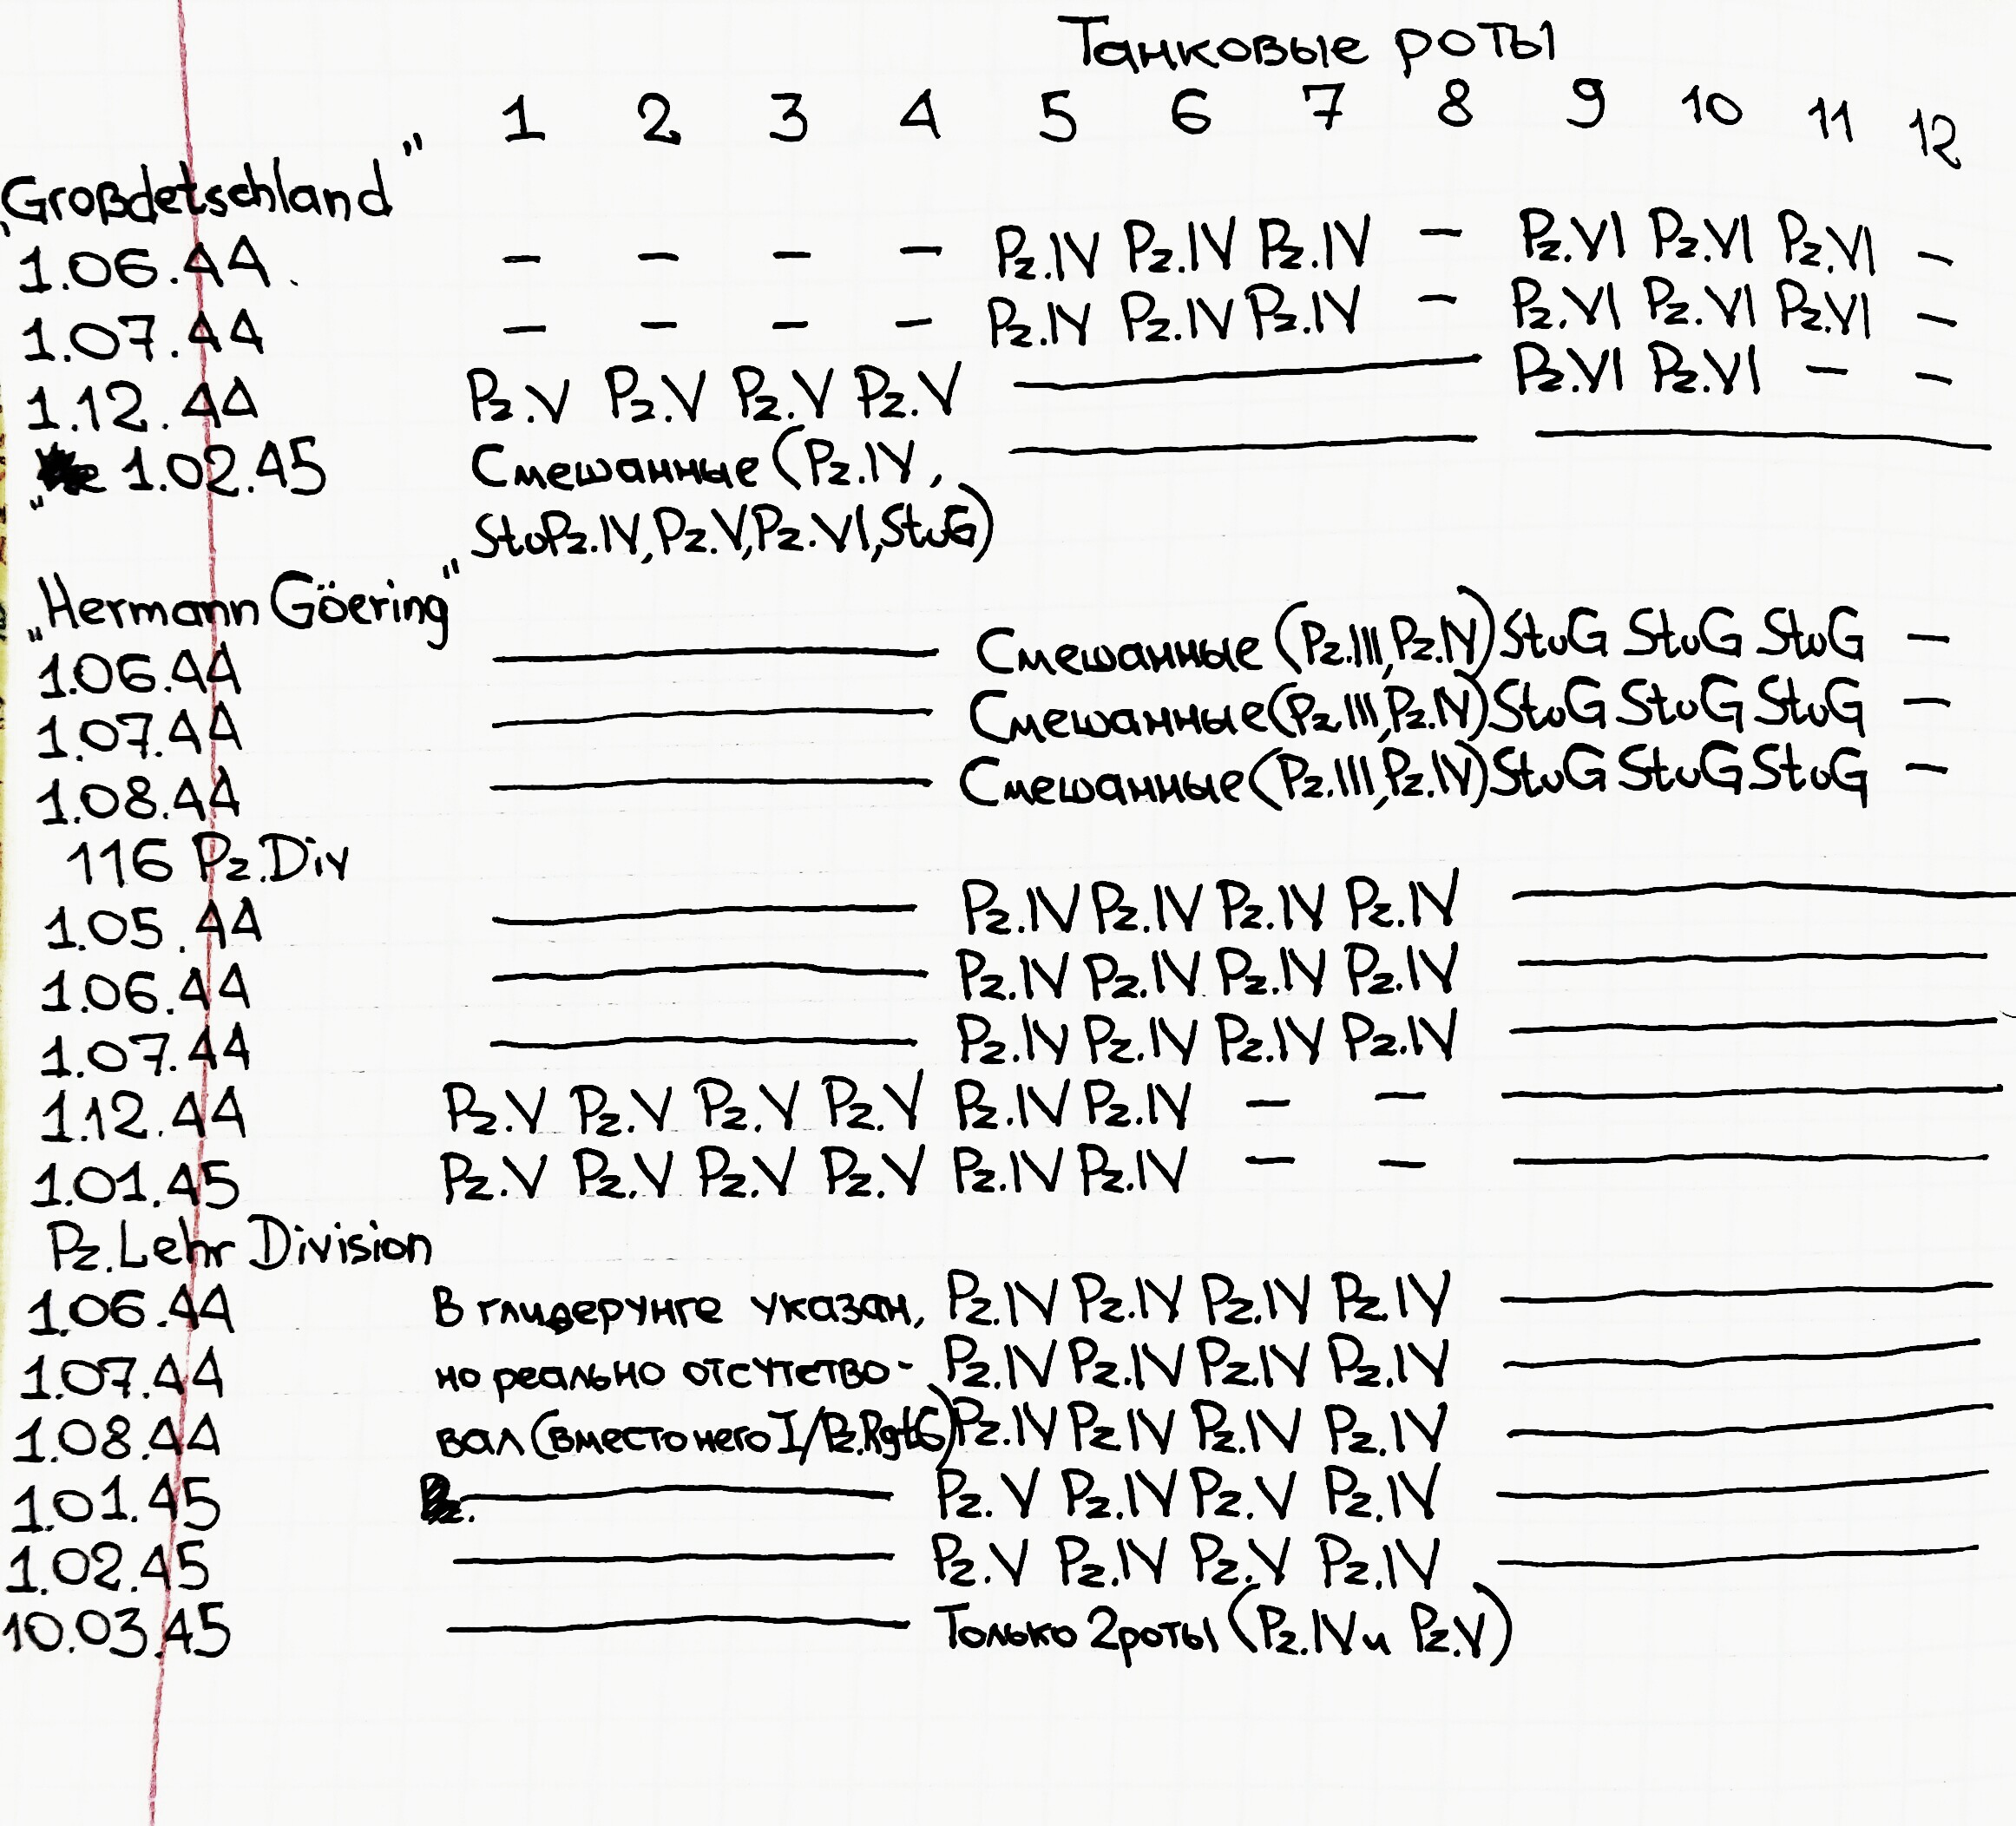 Танковые роты
1 2 3 4 5 6 7 8 9 10 11 12
„Großdetschland"
1.06.44 – – – – Pz.IV Pz.IV Pz.IV – Pz.VI Pz.VI Pz.VI –
1.07.44 – – – – Pz.IV Pz.IV Pz.IV – Pz.VI Pz.VI Pz.VI –
1.12.44 Pz.V Pz.V Pz.V Pz.V — Pz.VI Pz.VI – –
1.02.45 Смешанные (Pz.IV, — —
StuPz.IV, Pz.V, Pz.VI, StuG)
„Hermann Göering"
1.06.44 — Смешанные (Pz.III, Pz.IV) StuG StuG StuG –
1.07.44 — Смешанные (Pz III, Pz.IV) StuG StuG StuG –
1.08.44 — Смешанные (Pz.III, Pz.IV) StuG StuG StuG –
116 Pz.Div
1.05.44 — Pz.IV Pz.IV Pz.IV Pz.IV —
1.06.44 — Pz.IV Pz.IV Pz.IV Pz.IV —
1.07.44 — Pz.IV Pz.IV Pz.IV Pz.IV —
1.12.44 Pz.V Pz.V Pz.V Pz.V Pz.IV Pz.IV – – —
1.01.45 Pz.V Pz.V Pz.V Pz.V Pz.IV Pz.IV – – —
Pz.Lehr Division
1.06.44 В глидерунге указан, Pz.IV Pz.IV Pz.IV Pz.IV —
1.07.44 но реально отсутство- Pz.IV Pz.IV Pz.IV Pz.IV —
1.08.44 вал (вместо него I/Pz.Rgt6) Pz.IV Pz IV Pz.IV Pz.IV —
1.01.45 — Pz.V Pz.IV Pz.V Pz.IV —
1.02.45 — Pz.V Pz.IV Pz.V Pz.IV —
10.03.45 — Только 2 роты (Pz.IV и Pz.V)